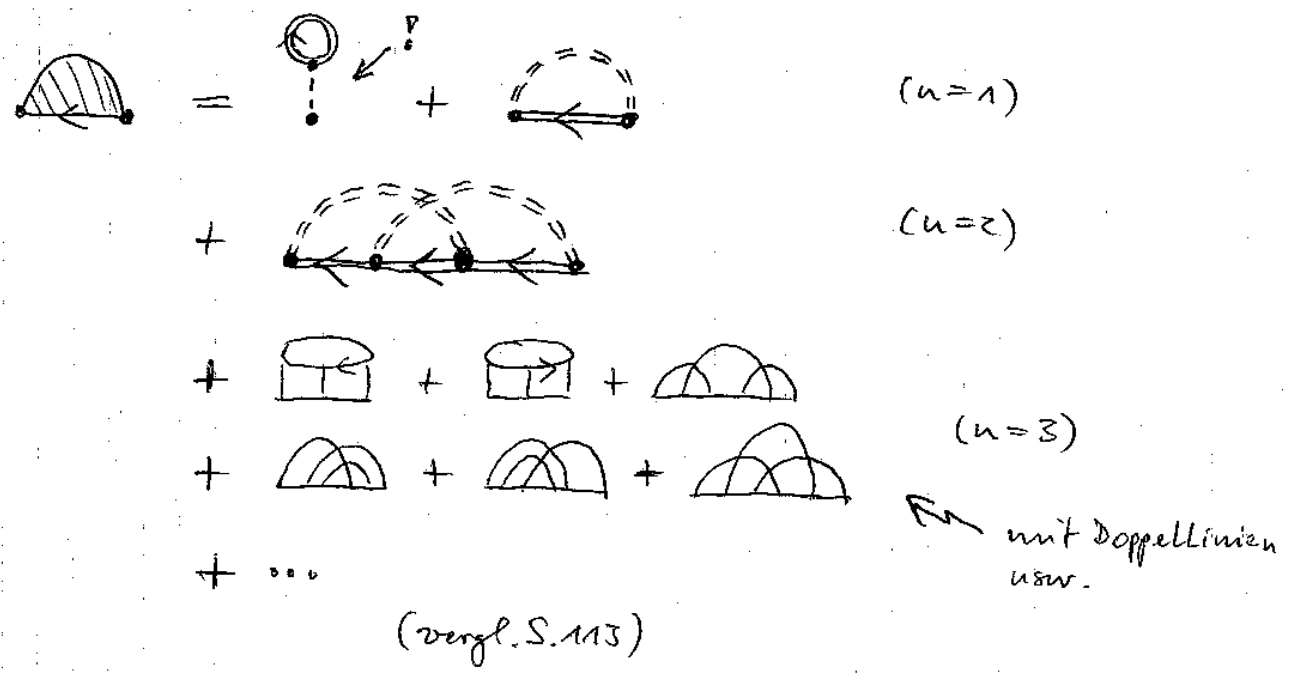 = ! + (n=1)
+ (n=2)
+ + +
+ + + (n=3)
mit Doppellinien
usw.
+ ...
(vergl. S. 113)